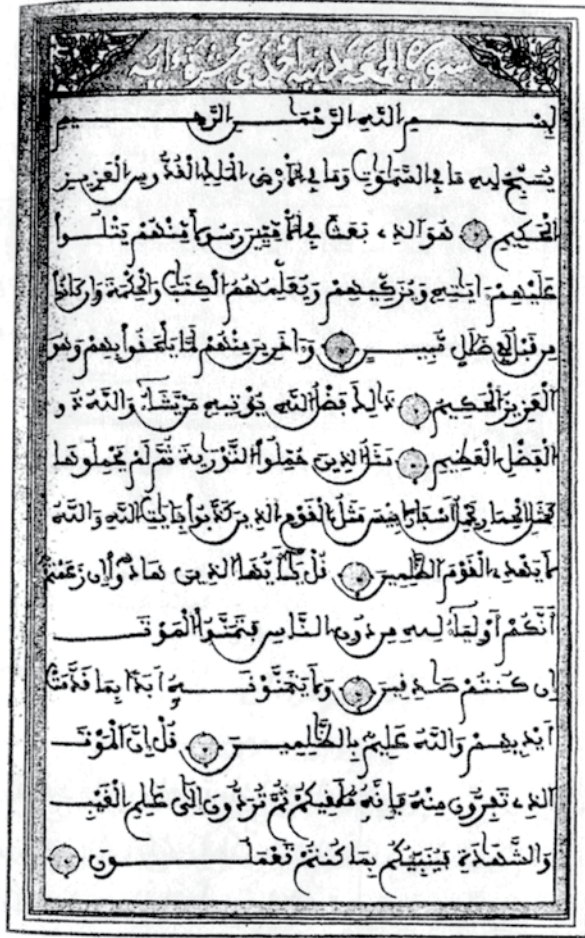 سورة الجمعة مدنية احدى عشرة ءاية
بِسْمِ اللَّهِ الرَّحْمَٰنِ الرَّحِيمِ
يُسَبِّحُ لِلهِ مَا فِي السَّمَٰوَٰتِ وَمَا فِي الْأَرْضِ الْمَلِكِ الْقُدُّوسِ الْعَزِيزِ
الْحَكِيمِ هُوَ الَّذِي بَعَثَ فِي الْأُمِّيِّينَ رَسُولًا مِّنْهُمْ يَتْلُواْ
عَلَيْهِمْ ءَايَٰتِهِ وَيُزَكِّيهِمْ وَيُعَلِّمُهُمُ الْكِتَٰبَ وَالْحِكْمَةَ وَإِن كَانُواْ
مِن قَبْلُ لَفِي ضَلَٰلٍ مُّبِينٍ وَءَاخَرِينَ مِنْهُمْ لَمَّا يَلْحَقُواْ بِهِمْ وَهُوَ
الْعَزِيزُ الْحَكِيمُ ذَٰلِكَ فَضْلُ اللَّهِ يُؤْتِيهِ مَنْ يَّشَآءُ وَاللَّهُ ذُو
الْفَضْلِ الْعَظِيمِ مَثَلُ الَّذِينَ حُمِّلُواْ التَّوْرَىٰةَ ثُمَّ لَمْ يَحْمِلُوهَا
كَمَثَلِ الْحِمَارِ يَحْمِلُ أَسْفَارًا بِيسَ مَثَلُ الْقَوْمِ الَّذِينَ كَذَّبُواْ بِـَٔايَٰتِ اللَّهِ وَاللَّهُ
لَا يَهْدِي الْقَوْمَ الظَّٰلِمِينَ قُلْ يَٰٓأَيُّهَا الَّذِينَ هَادُوٓاْ إِن زَعَمْتُمُ
أَنَّكُمْ أَوْلِيَآءُ لِلهِ مِن دُونِ النَّاسِ فَتَمَنَّوُاْ الْمَوْتَ
إِن كُنتُمْ صَٰدِقِينَ وَلَا يَتَمَنَّوْنَهُ أَبَدًا بِمَا قَدَّمَتْ
أَيْدِيهِمْ وَاللَّهُ عَلِيمٌ بِالظَّٰلِمِينَ قُلْ إِنَّ الْمَوْتَ
الَّذِي تَفِرُّونَ مِنْهُ فَإِنَّهُ مُلَٰقِيكُمْ ثُمَّ تُرَدُّونَ إِلَىٰ عَٰلِمِ الْغَيْبِ
وَالشَّهَٰدَةِ فَيُنَبِّئُكُم بِمَا كُنتُمْ تَعْمَلُونَ